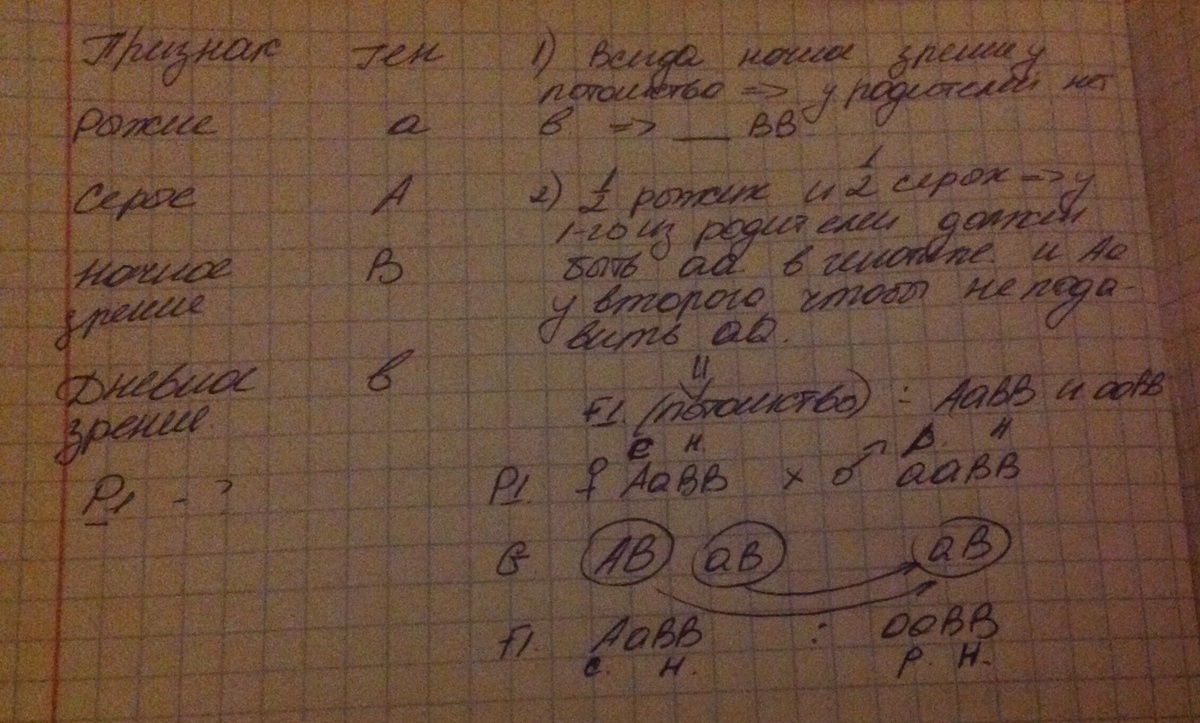 Признак Ген
Рыжие а
Серые А
ночное В
зрение
Дневное в
зрение
P1 - ?
1) Всегда ночн зрение у
потомства => у родителей нет
в => __ ВВ
2) 1/2 рыжих и 1/2 серых => у
1-го из родителей должен
быть аа в генотипе и Аа
у второго чтобы не пода-
вить аа.
F1 (потомство) : АаВВ и ааВВ
с н. р. н
P1. ♀ АаВВ x ♂ ааВВ
G АВ аВ аВ
F1. АаВВ : ааВВ
с. н. р. н.